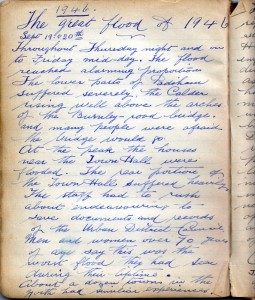 1946.
The great flood of 1946
Sept 19 & 20th
Throughout Thursday night and on
to Friday mid-day. The flood
reached alarming proportion
The lower parts of Padiham
suffered severely, the Calder
rising well above the arches
of the Burnley-road bridge.
and many people were afraid
the bridge would go.
At the peak the houses
near the Town Hall were
flooded. The rear portion of
the Town Hall suffered heavily
The staff had a rush
about endeavouring to
save documents and records
of the Urban District Council
Men and women over 70 years
of age say this was the
worst flood they had seen
during their lifetime.
About a dozen towns in the
North had similar experiences